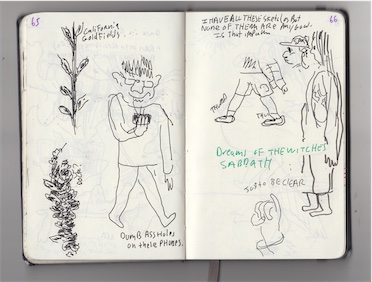 65
California
GoldFields.
DUMB ASSHOLES
on their PHONES.
66
I HAVE ALL THESE SKETCHES BUT
NONE OF THEM ARE Any Good.
Is that
Dreams OF THE WITCHES
SABBATH
JUST TO BE CLEAR